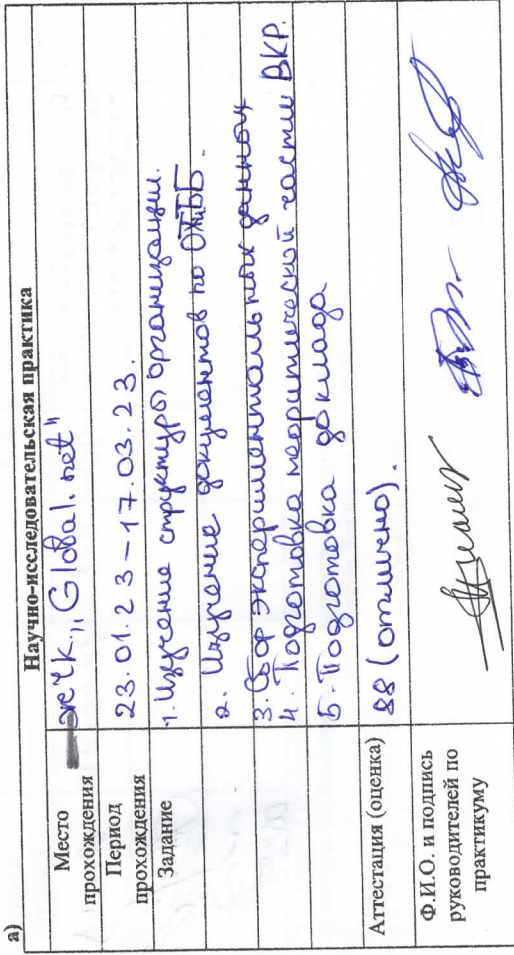 а)
Научно-исследовательская практика
Место прохождения
жчк. „Global.net"
Период прохождения
23.01.23 – 17.03.23.
Задание
1. Изучение структуры организации.
2. Изучение документов по ОТиББ.
3. Сбор экспериментальных данных
4. Подготовка теоритической части ВКР.
5. Подготовка доклада
Аттестация (оценка)
88 (отлично).
Ф.И.О. и подпись
руководителей по
практикуму